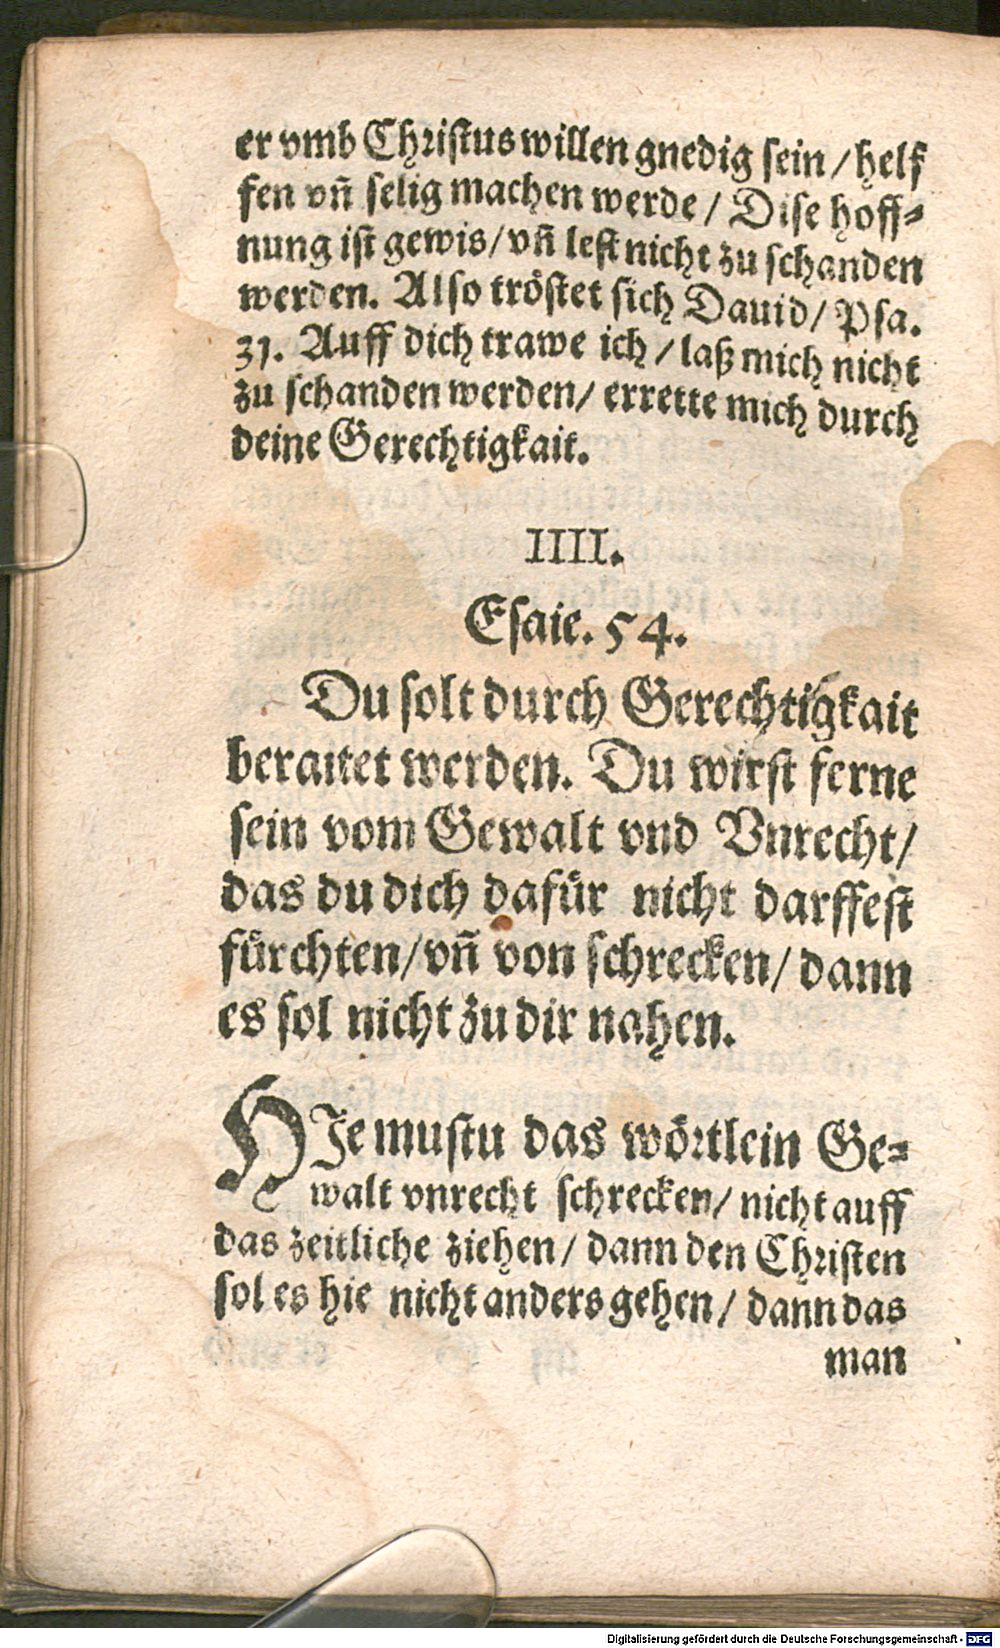 er vmb Christus willen gnedig sein / helf
fen vñ selig machen werde / Dise hoff⸗
nung ist gewis / vñ lest nicht zu schanden
werden. Also tröstet sich Dauid / Psa.
31. Auff dich trawe ich / laß mich nicht
zu schanden werden / errette mich durch
deine Gerechtigkait.
IIII.
Esaie. 54.
Du solt durch Gerechtigkait
beraitet werden. Du wirst ferne
sein vom Gewalt vnd Vnrecht /
das du dich dafür nicht darffest
fürchten / vñ von schrecken / dann
es sol nicht zu dir nahen.
HIe mustu das wörtlein Ge⸗
walt vnrecht schrecken / nicht auff
das zeitliche ziehen / dann den Christen
sol es hie nicht anders gehen / dann das
man
Digitalisierung gefördert durch die Deutsche Forschungsgemeinschaft - DFG